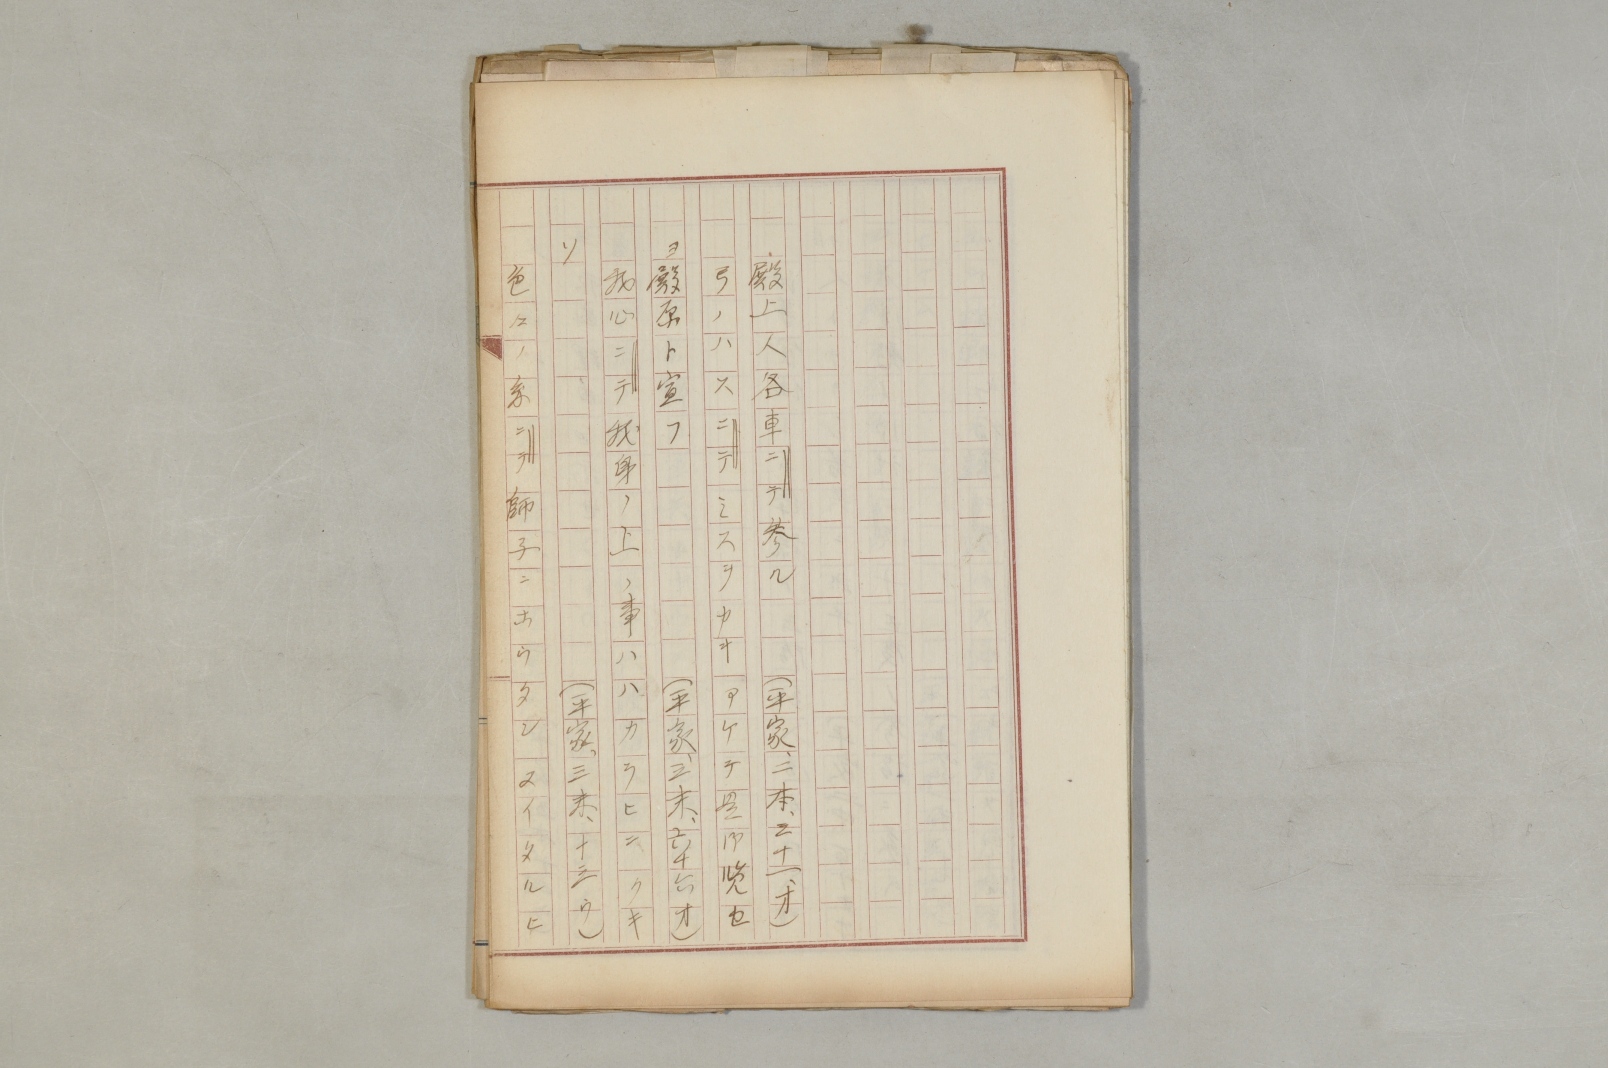 殿上人各車ニテ参ル　(平家、二本、三十一、オ)
弓ノハスニテミスヲカキアケテ是御覧セ
ヨ殿原ト宣フ　(平家、三末、六十六オ)
我心ニテ我身ノ上ノ事ハハカラヒニクキ
ソ　(平家、三末、十三ウ)
色々ノ糸ニテ師子ニホウタンヌイタルヒ